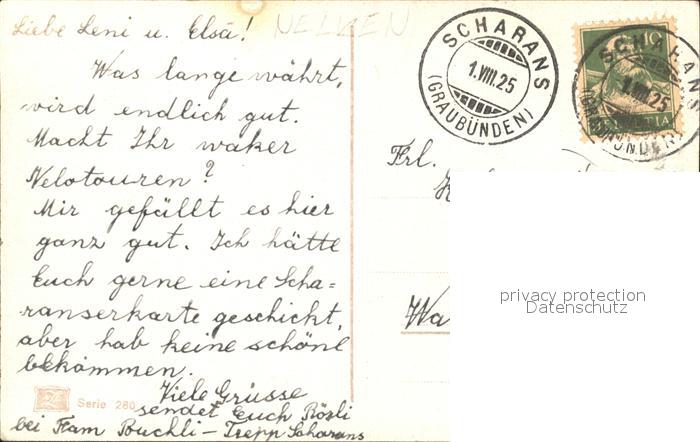 Liebe Leni u. Elsa!
NELKEN
Was lange währt,
wird endlich gut.
Macht Ihr waker
Velotouren?
Mir gefällt es hier
ganz gut. Ich hätte
Euch gerne eine Scha=
ranserkarte geschickt,
aber hab keine schöne
bekommen.
Viele Grüsse
sendet Euch Rösli
bei Fam Buchli - Trepp Scharans
Serie 280
SCHARANS
1.VIII.25
(GRAUBÜNDEN)
10
HELVETIA
SCHARANS
1.VIII.25
(GRAUBÜNDEN)
Frl.
Wa
privacy protection
Datenschutz